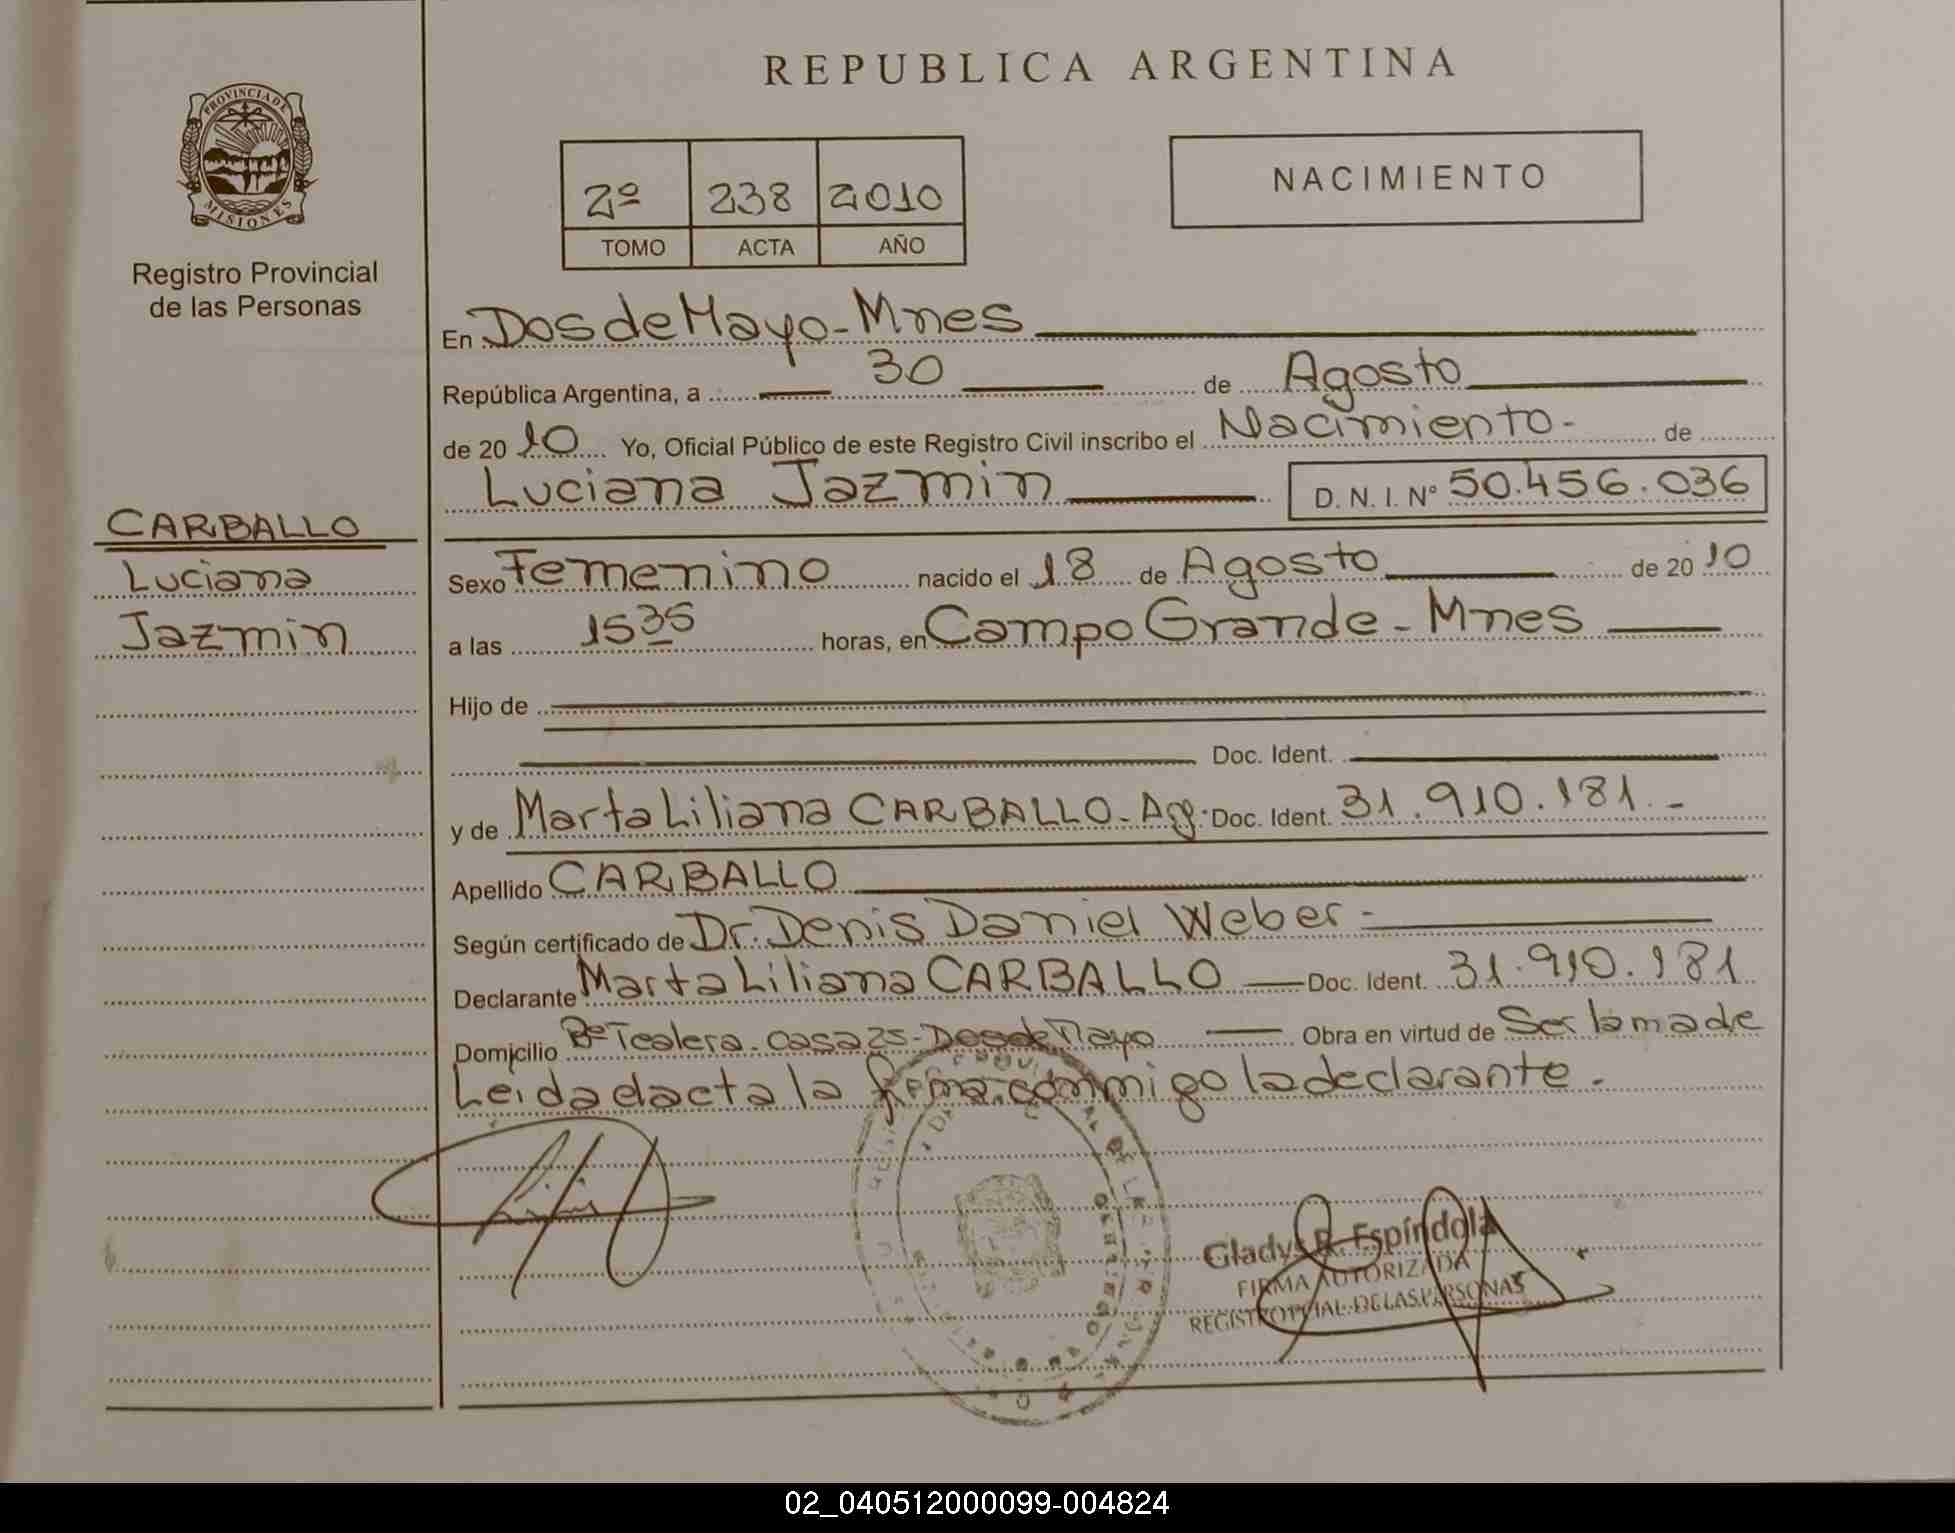 REPUBLICA ARGENTINA
PROVINCIA DE
MISIONES
Registro Provincial
de las Personas
2º 238 2010
TOMO ACTA AÑO
NACIMIENTO
En Dos de Mayo - Mnes
República Argentina, a 30 de Agosto
de 2010 Yo, Oficial Público de este Registro Civil inscribo el Nacimiento - de
Luciana Jazmin D. N. I. Nº 50.456.036
CARBALLO
Luciana
Jazmin
Sexo Femenino nacido el 18 de Agosto de 2010
a las 1535 horas, en Campo Grande - Mnes
Hijo de
Doc. Ident.
y de Marta Liliana CARBALLO - Arg. Doc. Ident. 31.910.181.-
Apellido CARBALLO
Según certificado de Dr. Denis Daniel Weber -
Declarante Marta Liliana CARBALLO Doc. Ident. 31.910.181
Domicilio Bº Tealera - casa 25 - Dos de Mayo Obra en virtud de Ser la madre
Leida el acta la firma conmigo la declarante.
Gladys R. Espíndola
FIRMA AUTORIZADA
REGISTRO PCIAL. DE LAS PERSONAS
02_040512000099-004824